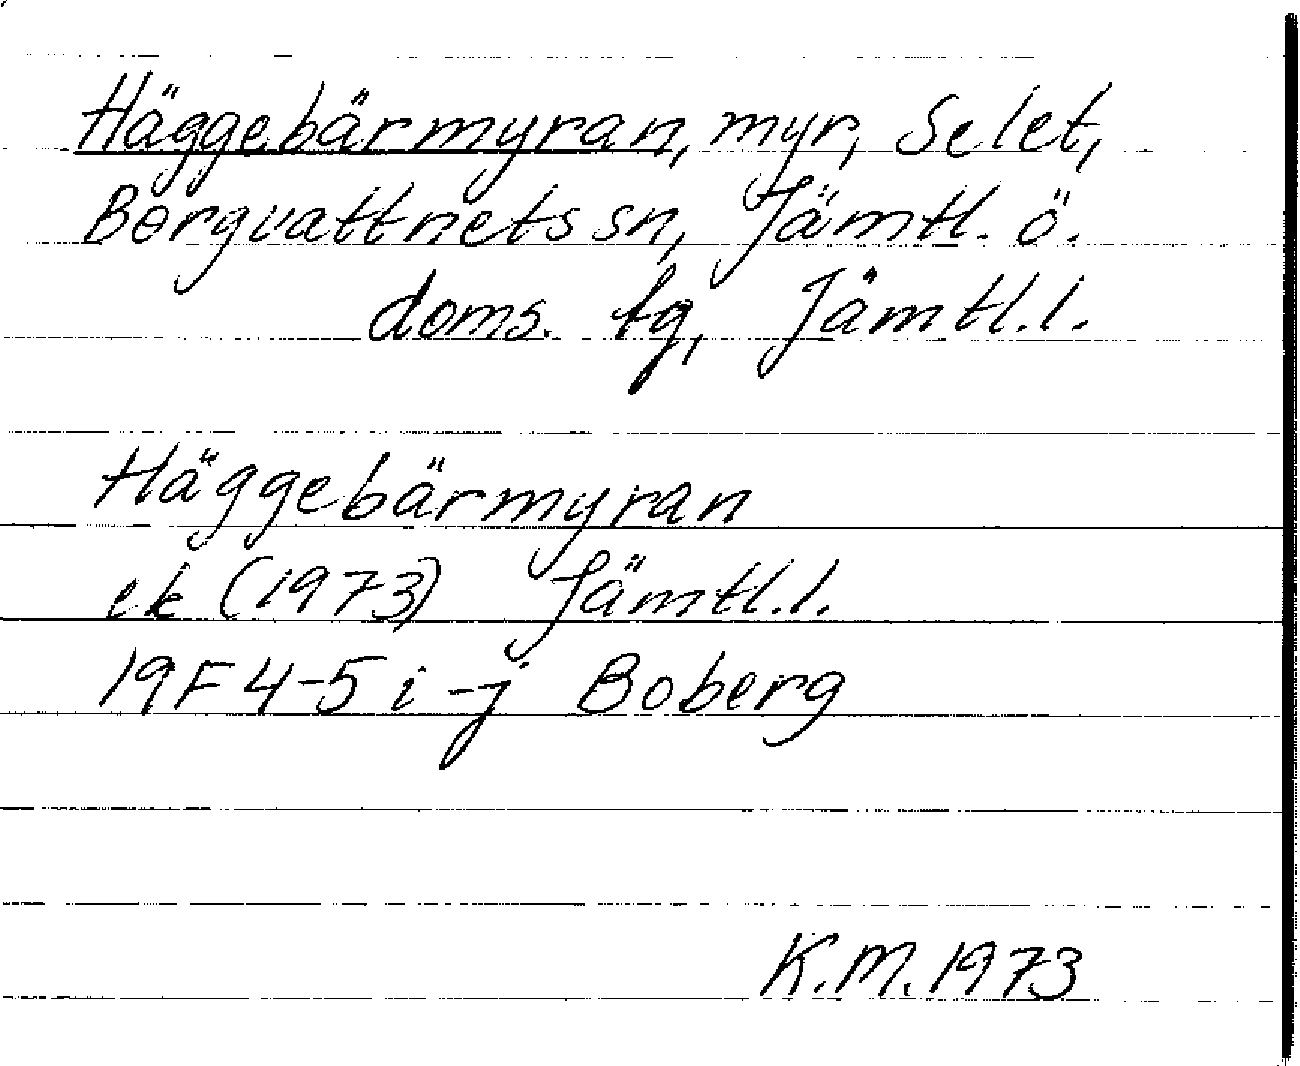 Häggebärmyran, myr, Selet,
Borgvattnets sn, Jämtl. ö.
doms. tg, Jämtl.l.
Häggebärmyran
ek (1973) Jämtl.l.
19F 4-5 i-j Boberg
K.M. 1973